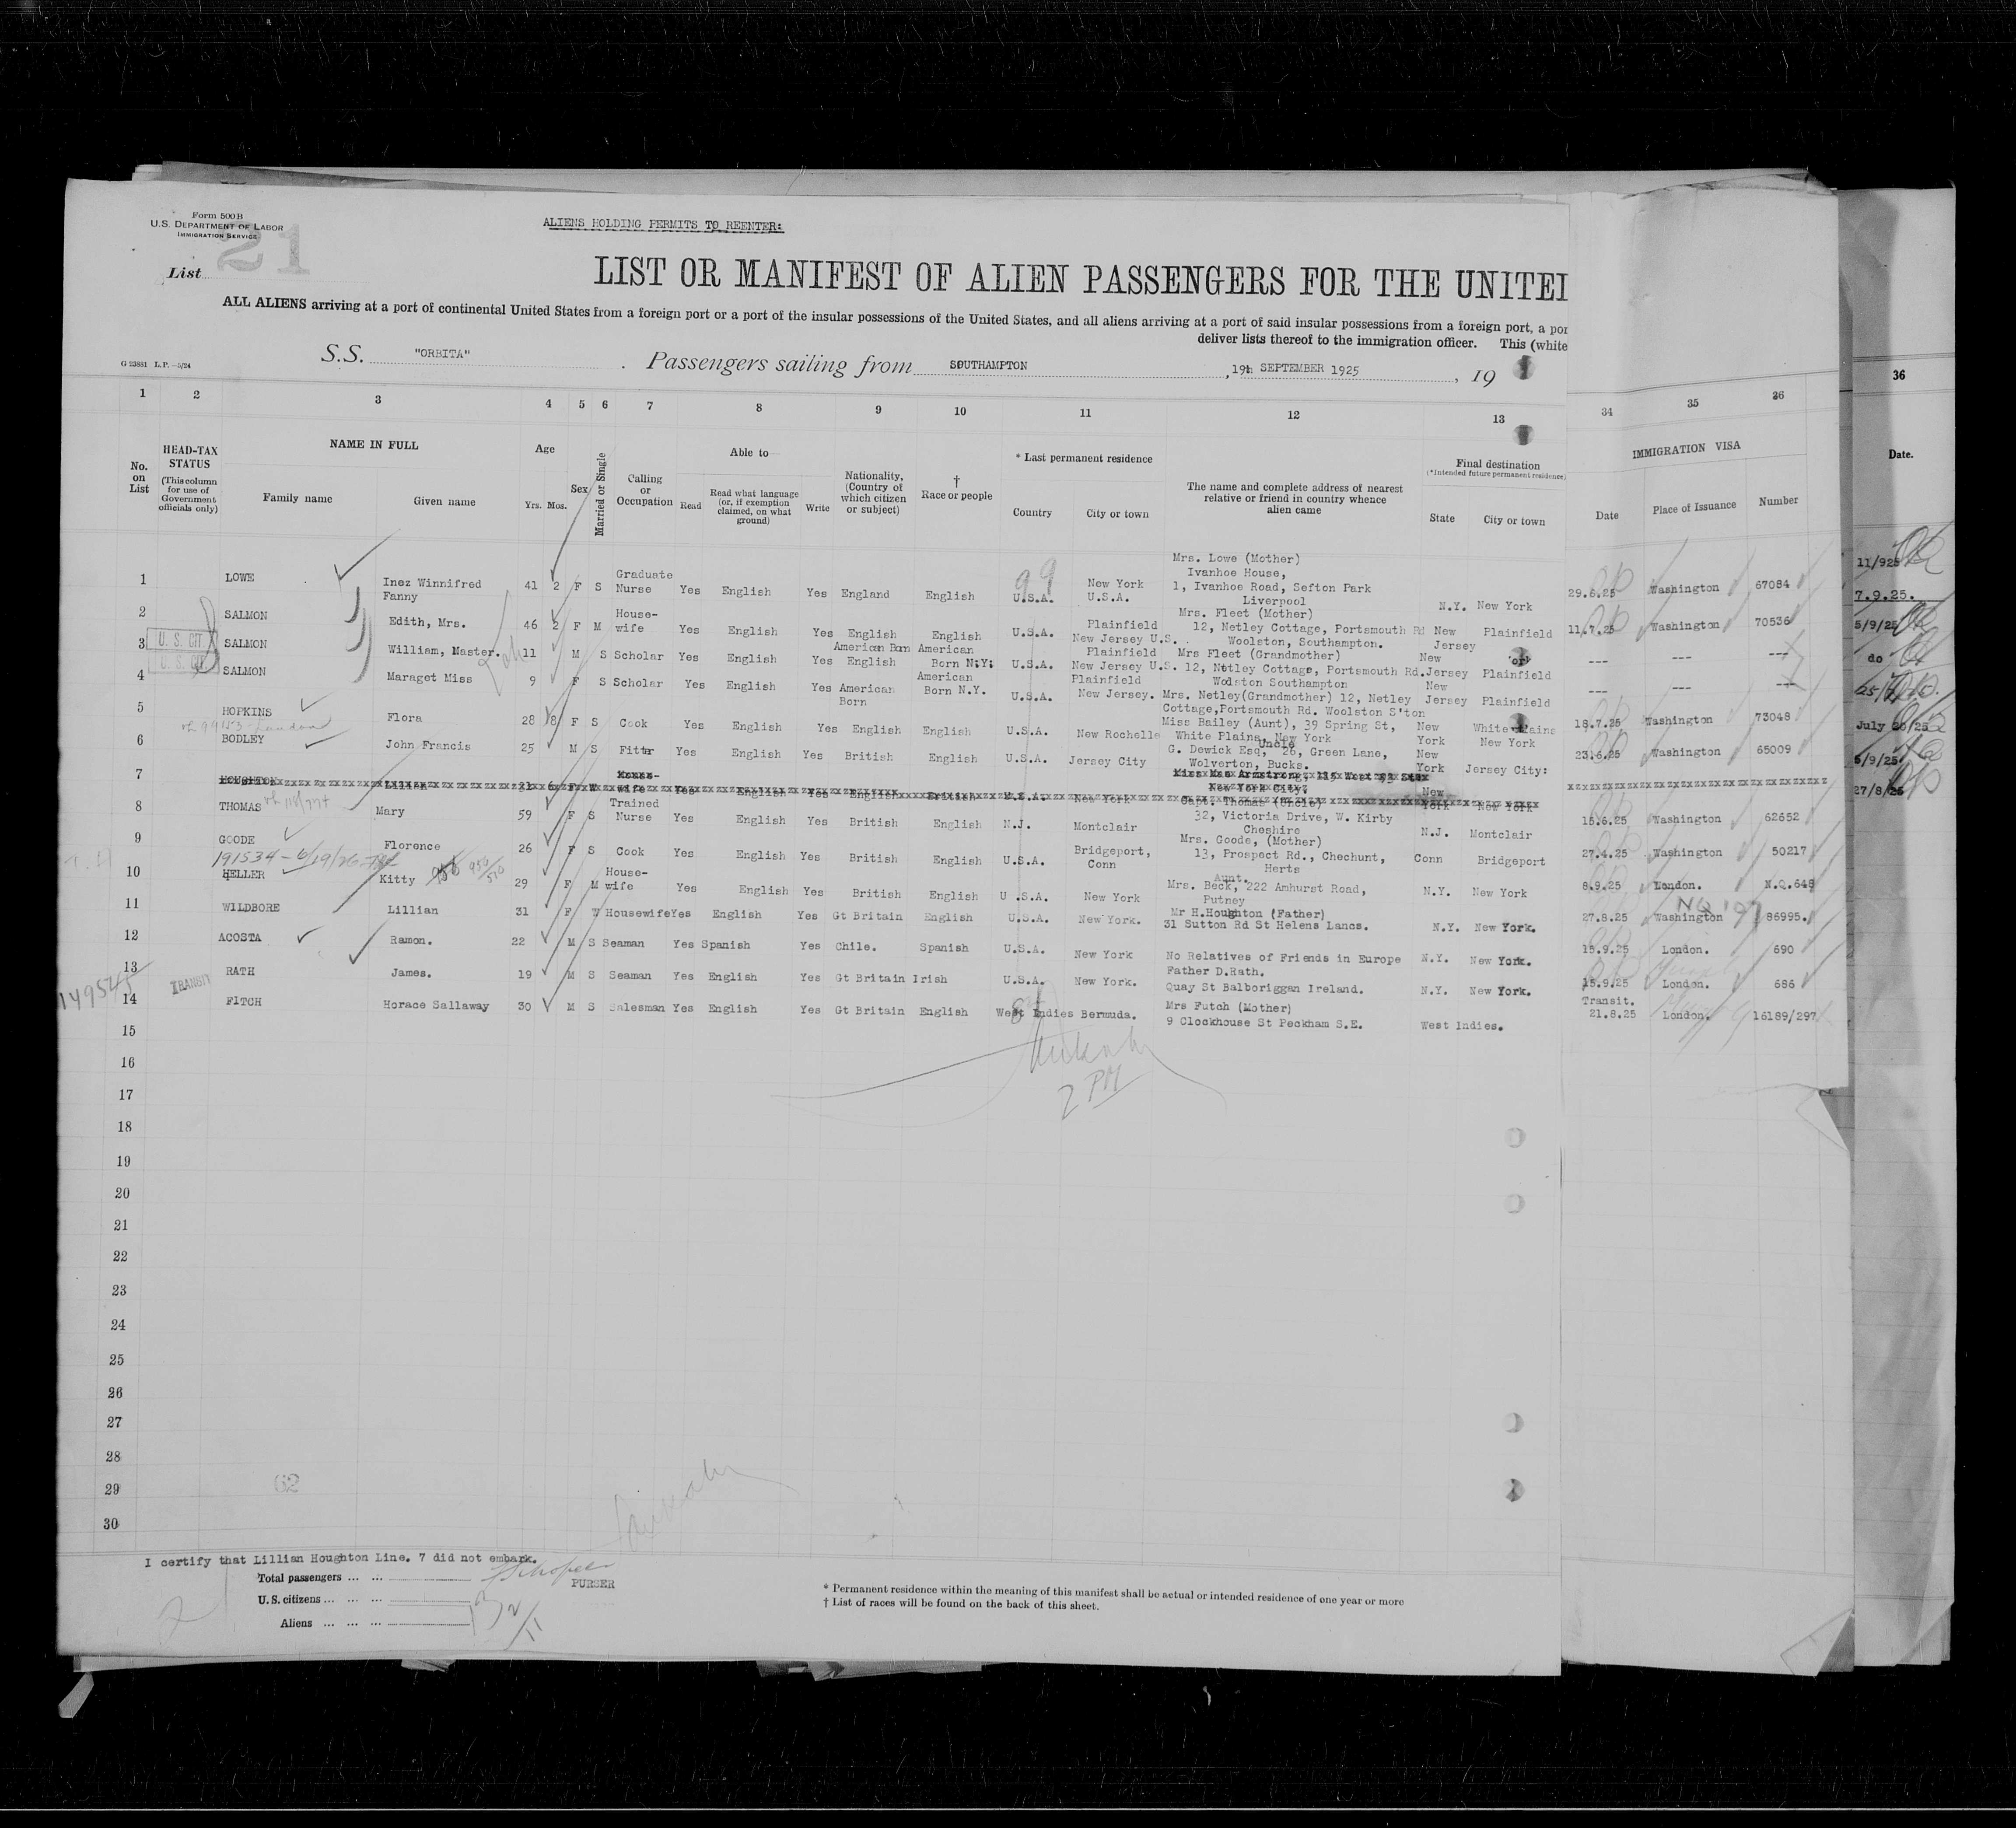 Form 500 B
U. S. DEPARTMENT OF LABOR
IMMIGRATION SERVICE
21
List
ALIENS HOLDING PERMITS TO REENTER:
LIST OR MANIFEST OF ALIEN PASSENGERS FOR THE UNITE
ALL ALIENS arriving at a port of continental United States from a foreign port or a port of the insular possessions of the United States, and all aliens arriving at a port of said insular possessions from a foreign port, a
deliver lists thereof to the immigration officer. This (white
G 23881 L. P.—5/24
S.S. "ORBITA" Passengers sailing from SOUTHAMPTON, 19th SEPTEMBER 1925, 19
1 2 3 4 5 6 7 8 9 10 11 12 13 34 35 36 36
No. on List
HEAD-TAX STATUS (This column for use of Government officials only)
NAME IN FULL Family name Given name
Age Yrs. Mos.
Sex
Married or Single
Calling or Occupation
Able to Read Read what language (or, if exemption claimed, on what ground) Write
Nationality, (Country of which citizen or subject)
† Race or people
* Last permanent residence Country City or town
The name and complete address of nearest relative or friend in country whence alien came
Final destination (*Intended future permanent residence) State City or town
IMMIGRATION VISA Date Place of Issuance Number
Date.
1 LOWE Inez Winnifred Fanny 41 2 F S Graduate Nurse Yes English Yes England English 99 U.S.A. New York U.S.A. Mrs. Lowe (Mother) Ivanhoe House, 1, Ivanhoe Road, Sefton Park Liverpool N.Y. New York 29.6.25 Washington 67084
2 SALMON Edith, Mrs. 46 2 F M House-wife Yes English Yes English English U.S.A. Plainfield New Jersey U.S. Mrs. Fleet (Mother) 12, Netley Cottage, Portsmouth Rd Woolston, Southampton. New Jersey Plainfield 11.7.25 Washington 70536
3 U. S. CIT SALMON William, Master. 11 M S Scholar Yes English Yes American Born English American Born N.Y. U.S.A. Plainfield New Jersey U.S. Mrs Fleet (Grandmother) 12, Netley Cottage, Portsmouth Rd. Woolston Southampton New Jersey Plainfield --- --- ---
4 U. S. CIT SALMON Maraget Miss 9 F S Scholar Yes English Yes American Born American Born N.Y. U.S.A. Plainfield New Jersey. Mrs. Netley(Grandmother) 12, Netley Cottage,Portsmouth Rd. Woolston S'ton New Jersey Plainfield --- --- ---
5 HOPKINS Flora 28 8 F S Cook Yes English Yes English English U.S.A. New Rochelle Miss Bailey (Aunt), 39 Spring St, White Plains, New York New York White Plains New York 18.7.25 Washington 73048
6 BODLEY John Francis 25 M S Fitter Yes English Yes British English U.S.A. Jersey City G. Dewick Esq, Uncle 26, Green Lane, Wolverton, Bucks. New York Jersey City: 23.6.25 Washington 65009
7 HOUGHTON Lilian 31 6 F W House-wife Yes English Yes English British U.S.A. New York Miss Mae Armstrong, 115 West 83 Stre New York City. New York New York
8 THOMAS Mary 59 F S Trained Nurse Yes English Yes British English N.J. Montclair Capt. Thomas (Uncle) 32, Victoria Drive, W. Kirby Cheshire N.J. Montclair 15.6.25 Washington 62652
9 GOODE Florence 26 F S Cook Yes English Yes British English U.S.A. Bridgeport, Conn Mrs. Goode, (Mother) 13, Prospect Rd., Chechunt, Herts Conn Bridgeport 27.4.25 Washington 50217
191534 - 6/19/26
10 HELLER Kitty 29 F M House-wife Yes English Yes British English U.S.A. New York Aunt. Mrs. Beck, 222 Amhurst Road, Putney N.Y. New York 8.9.25 London. N.Q.648
11 WILDBORE Lillian 31 F W Housewife Yes English Yes Gt Britain English U.S.A. New York. Mr H.Houghton (Father) 31 Sutton Rd St Helens Lancs. N.Y. New York. 27.8.25 Washington 86995.
12 ACOSTA Ramon. 22 M S Seaman Yes Spanish Yes Chile. Spanish U.S.A. New York No Relatives of Friends in Europe N.Y. New York. 15.9.25 London. 690
13 RATH James. 19 M S Seaman Yes English Yes Gt Britain Irish U.S.A. New York. Father D.Rath. Quay St Balboriggan Ireland. N.Y. New York. 15.9.25 London. 686
149545
14 TRANSIT FITCH Horace Sallaway 30 M S Salesman Yes English Yes Gt Britain English West Indies Bermuda. Mrs Futch (Mother) 9 Clockhouse St Peckham S.E. West Indies. Transit. 21.8.25 London. 16189/297
11/925
7.9.25.
5/9/25
do
July 20/25
5/9/25
27/8/25
15
16
2 PM
17
18
19
20
21
22
23
24
25
26
27
28
29
62
30
I certify that Lillian Houghton Line. 7 did not embark.
PURSER
Total passengers
U. S. citizens
Aliens
* Permanent residence within the meaning of this manifest shall be actual or intended residence of one year or more
† List of races will be found on the back of this sheet.